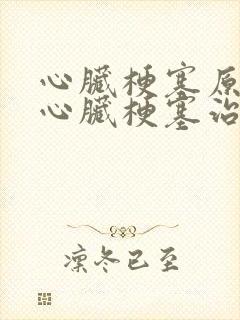 心臟梗塞原
心臟梗塞治
凜冬已至